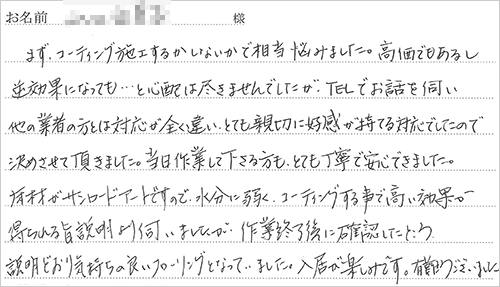 お名前 様
まず、コーティング施工するかしないかで相当悩みました。高価でもあるし
逆効果になっても…と心配は尽きませんでしたが、TELでお話を伺い
他の業者の方とは対応が全く違い、とても親切に好感が持てる対応でしたので
決めさせて頂きました。当日作業して下さる方も、とても丁寧で安心できました。
床材がサンロードアートですので、水分に弱く、コーティングする事で高い効果が
得られる旨説明より伺いましたが、作業終了後に確認したところ
説明どおり気持ちの良いフローリングとなっていました。入居が楽しみです。有難うございました